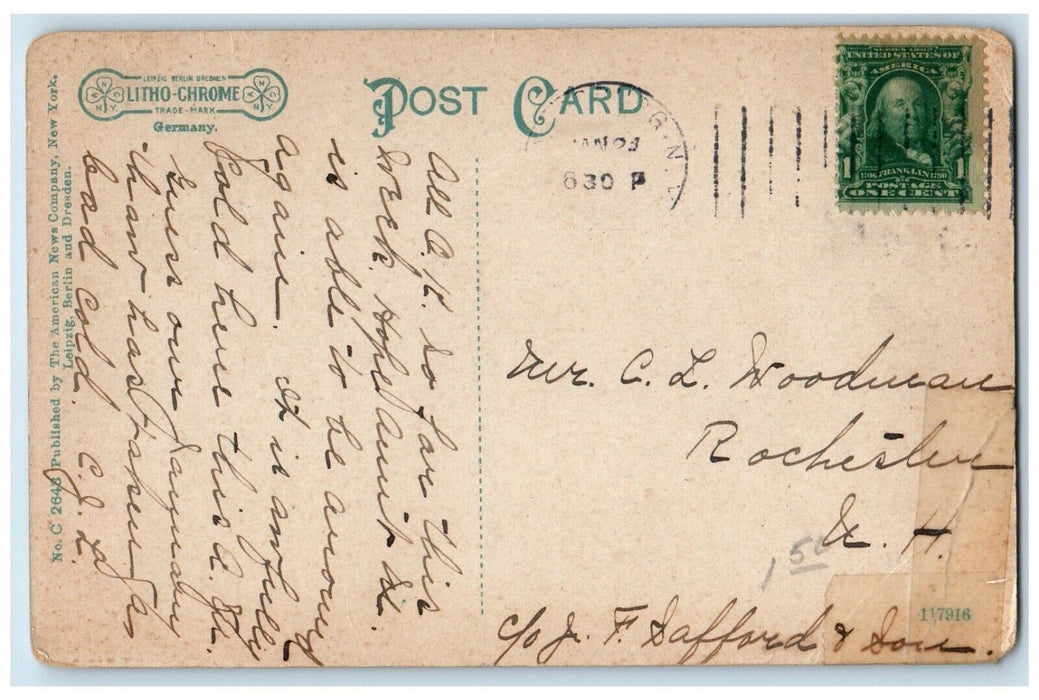 LEIPZIG BERLIN DRESDEN
LITHO-CHROME
TRADE-MARK
Germany.
N N
N Y
POST CARD
No. C 2643 Published by The American News Company, New York.
Leipzig, Berlin and Dresden.
JAN 23
630 P
SERIES 1902
UNITED STATES OF
AMERICA
1706 FRANKLIN 1790
1 1
POSTAGE
ONE CENT
All O.K. so far this
week. Hope Aunt Di.
is able to be around
again. It is awfully
cold here this A. M.
Guess our January
thaw has taken a
bad cold. C. J. S.
Mr. C. L. Woodman
Rochester
N. H.
c/o J. F. Safford & Son.
1 50
117916